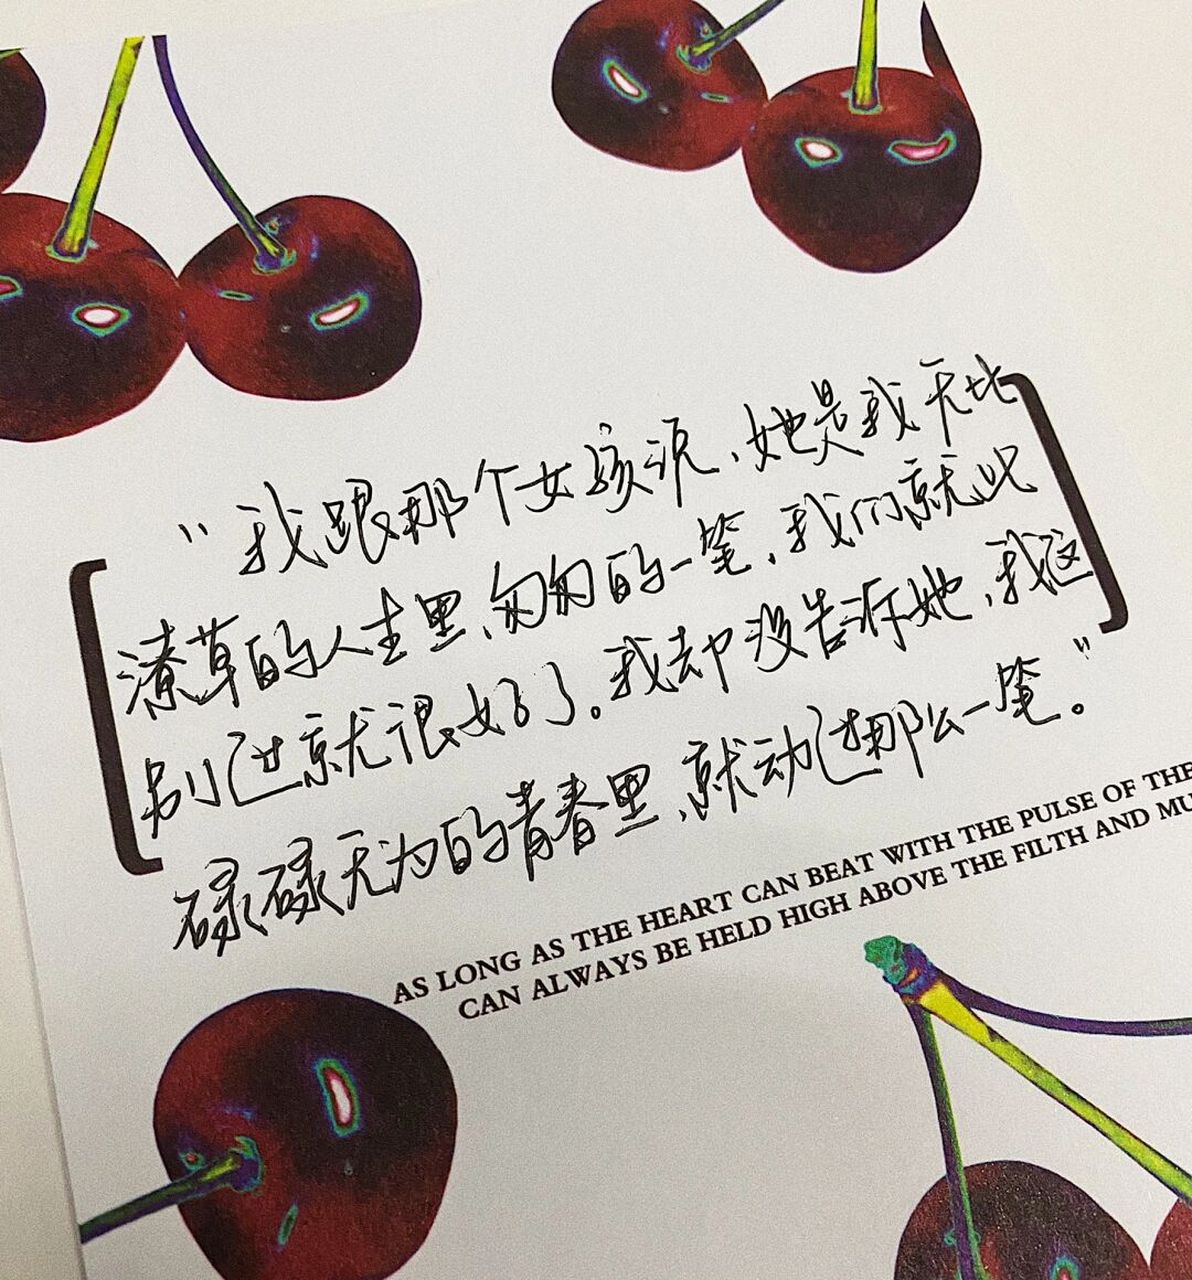 “我跟那个女孩说，她是我无比
潦草的人生里，匆匆的一笔，我们就此
别过就很好了。我却没告诉她，我这
碌碌无为的青春里，就动过那么一笔。”
AS LONG AS THE HEART CAN BEAT WITH THE PULSE OF THE
CAN ALWAYS BE HELD HIGH ABOVE THE FILTH AND MU